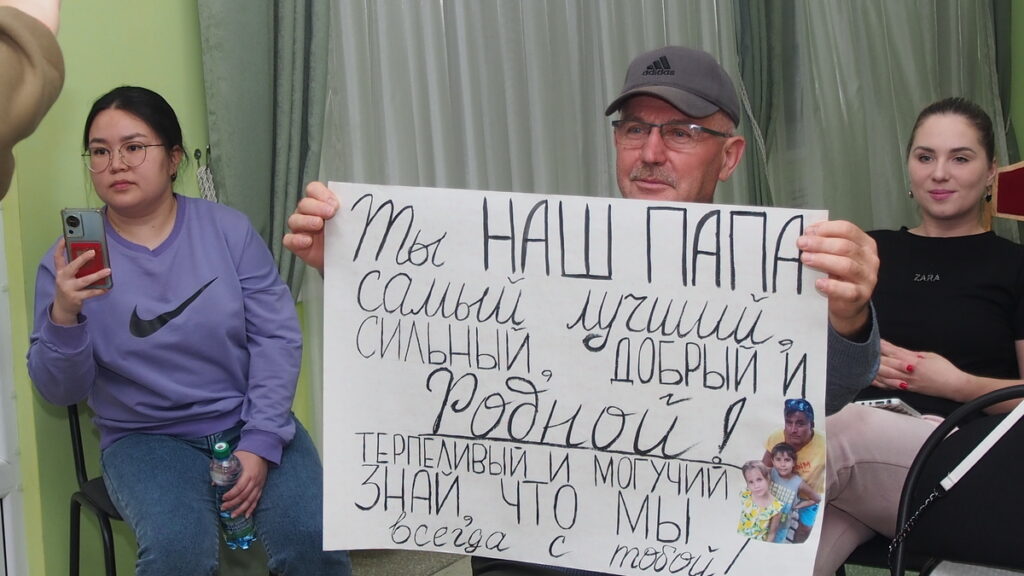 adidas
Ты НАШ ПАПА
самый лучший,
СИЛЬНЫЙ, ДОБРЫЙ И
Родной!
ТЕРПЕЛИВЫЙ И МОГУЧИЙ
ЗНАЙ, ЧТО МЫ
всегда с тобой!
ZARA